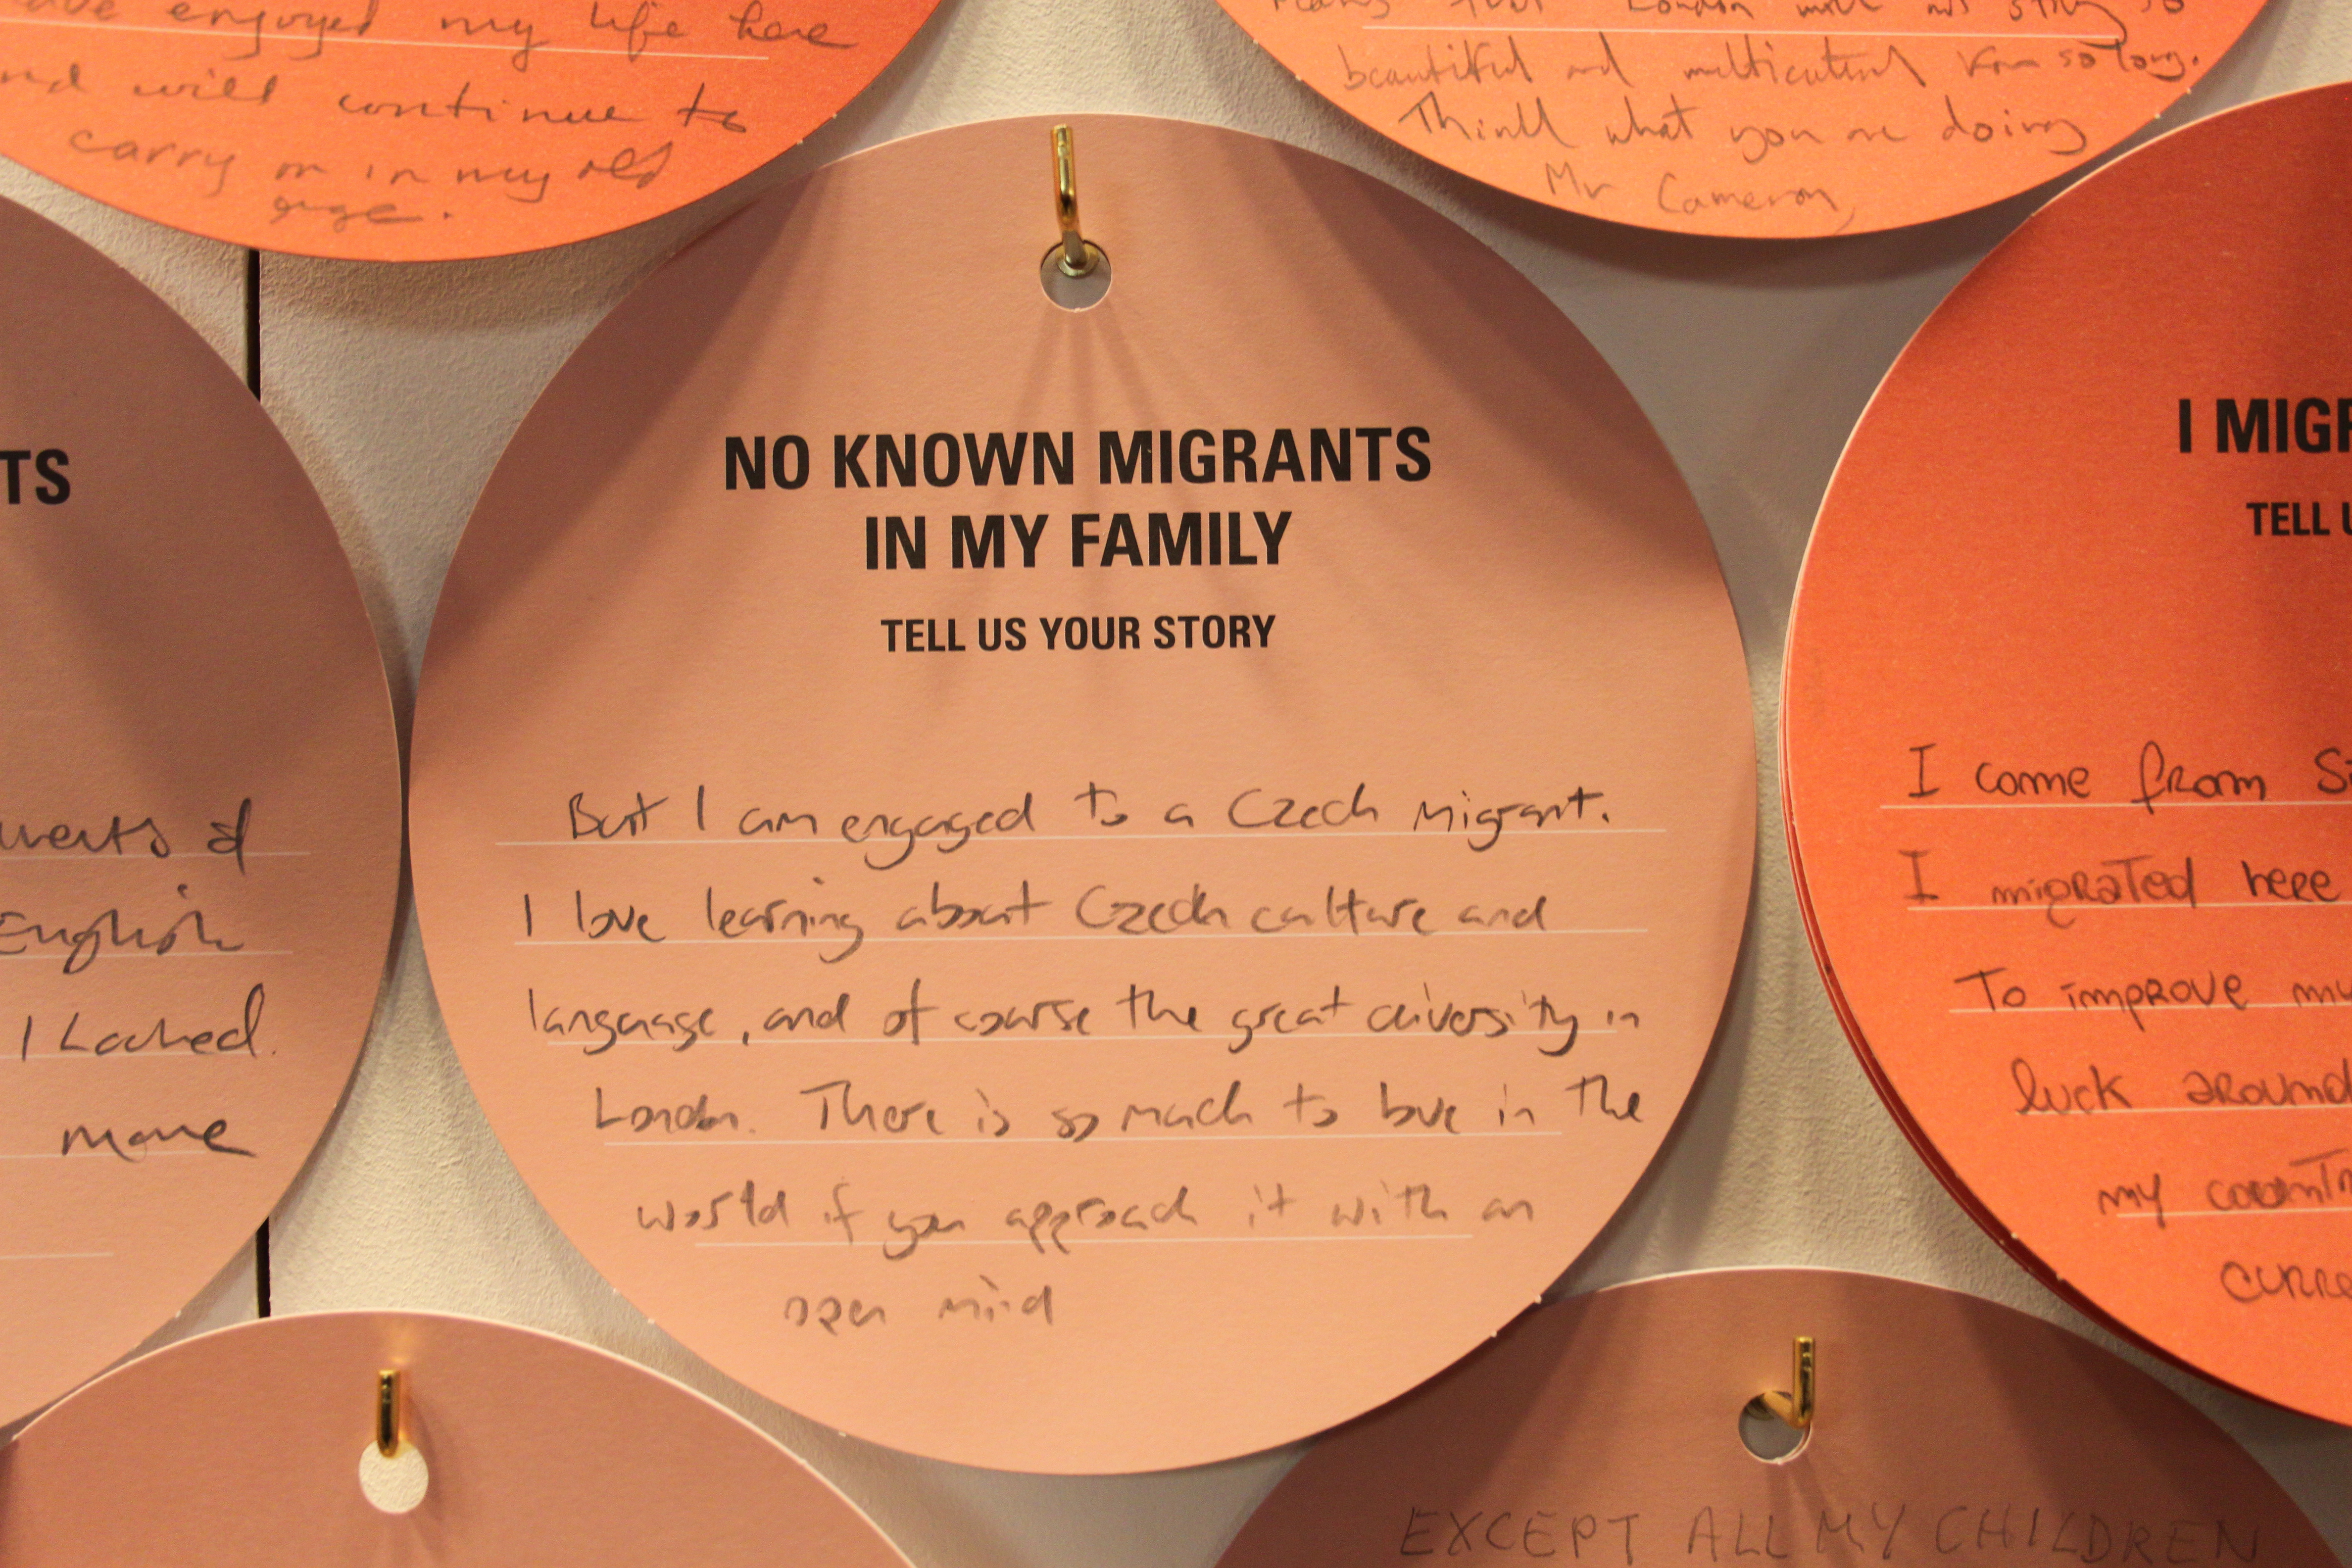 have enjoyed my life here
and will continue to
carry on in my old
age.
that London will not stay so
beautiful and multicultural for so long.
Think what you are doing
Mr Cameron
NO KNOWN MIGRANTS
IN MY FAMILY
TELL US YOUR STORY
But I am engaged to a Czech migrant.
I love learning about Czech culture and
language, and of course the great diversity in
London. There is so much to love in the
world if you approach it with an
open mind
TS
of
English
I Looked.
more
I MIGR
TELL U
I come from S
I migrated here
To improve my
luck around
my countr
curre
EXCEPT ALL MY CHILDREN